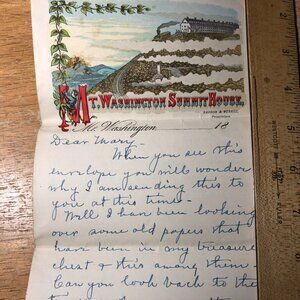 Mt. Washington Summit House,
Barron & Merrill,
Proprietors
Mt. Washington 18
Dear Mary -
When you see this
envelope you will wonder
why I am sending this to
you at this time -
Well I have been looking
over some old papers that
have been in my treasure
chest & this among them -
Can you look back to the